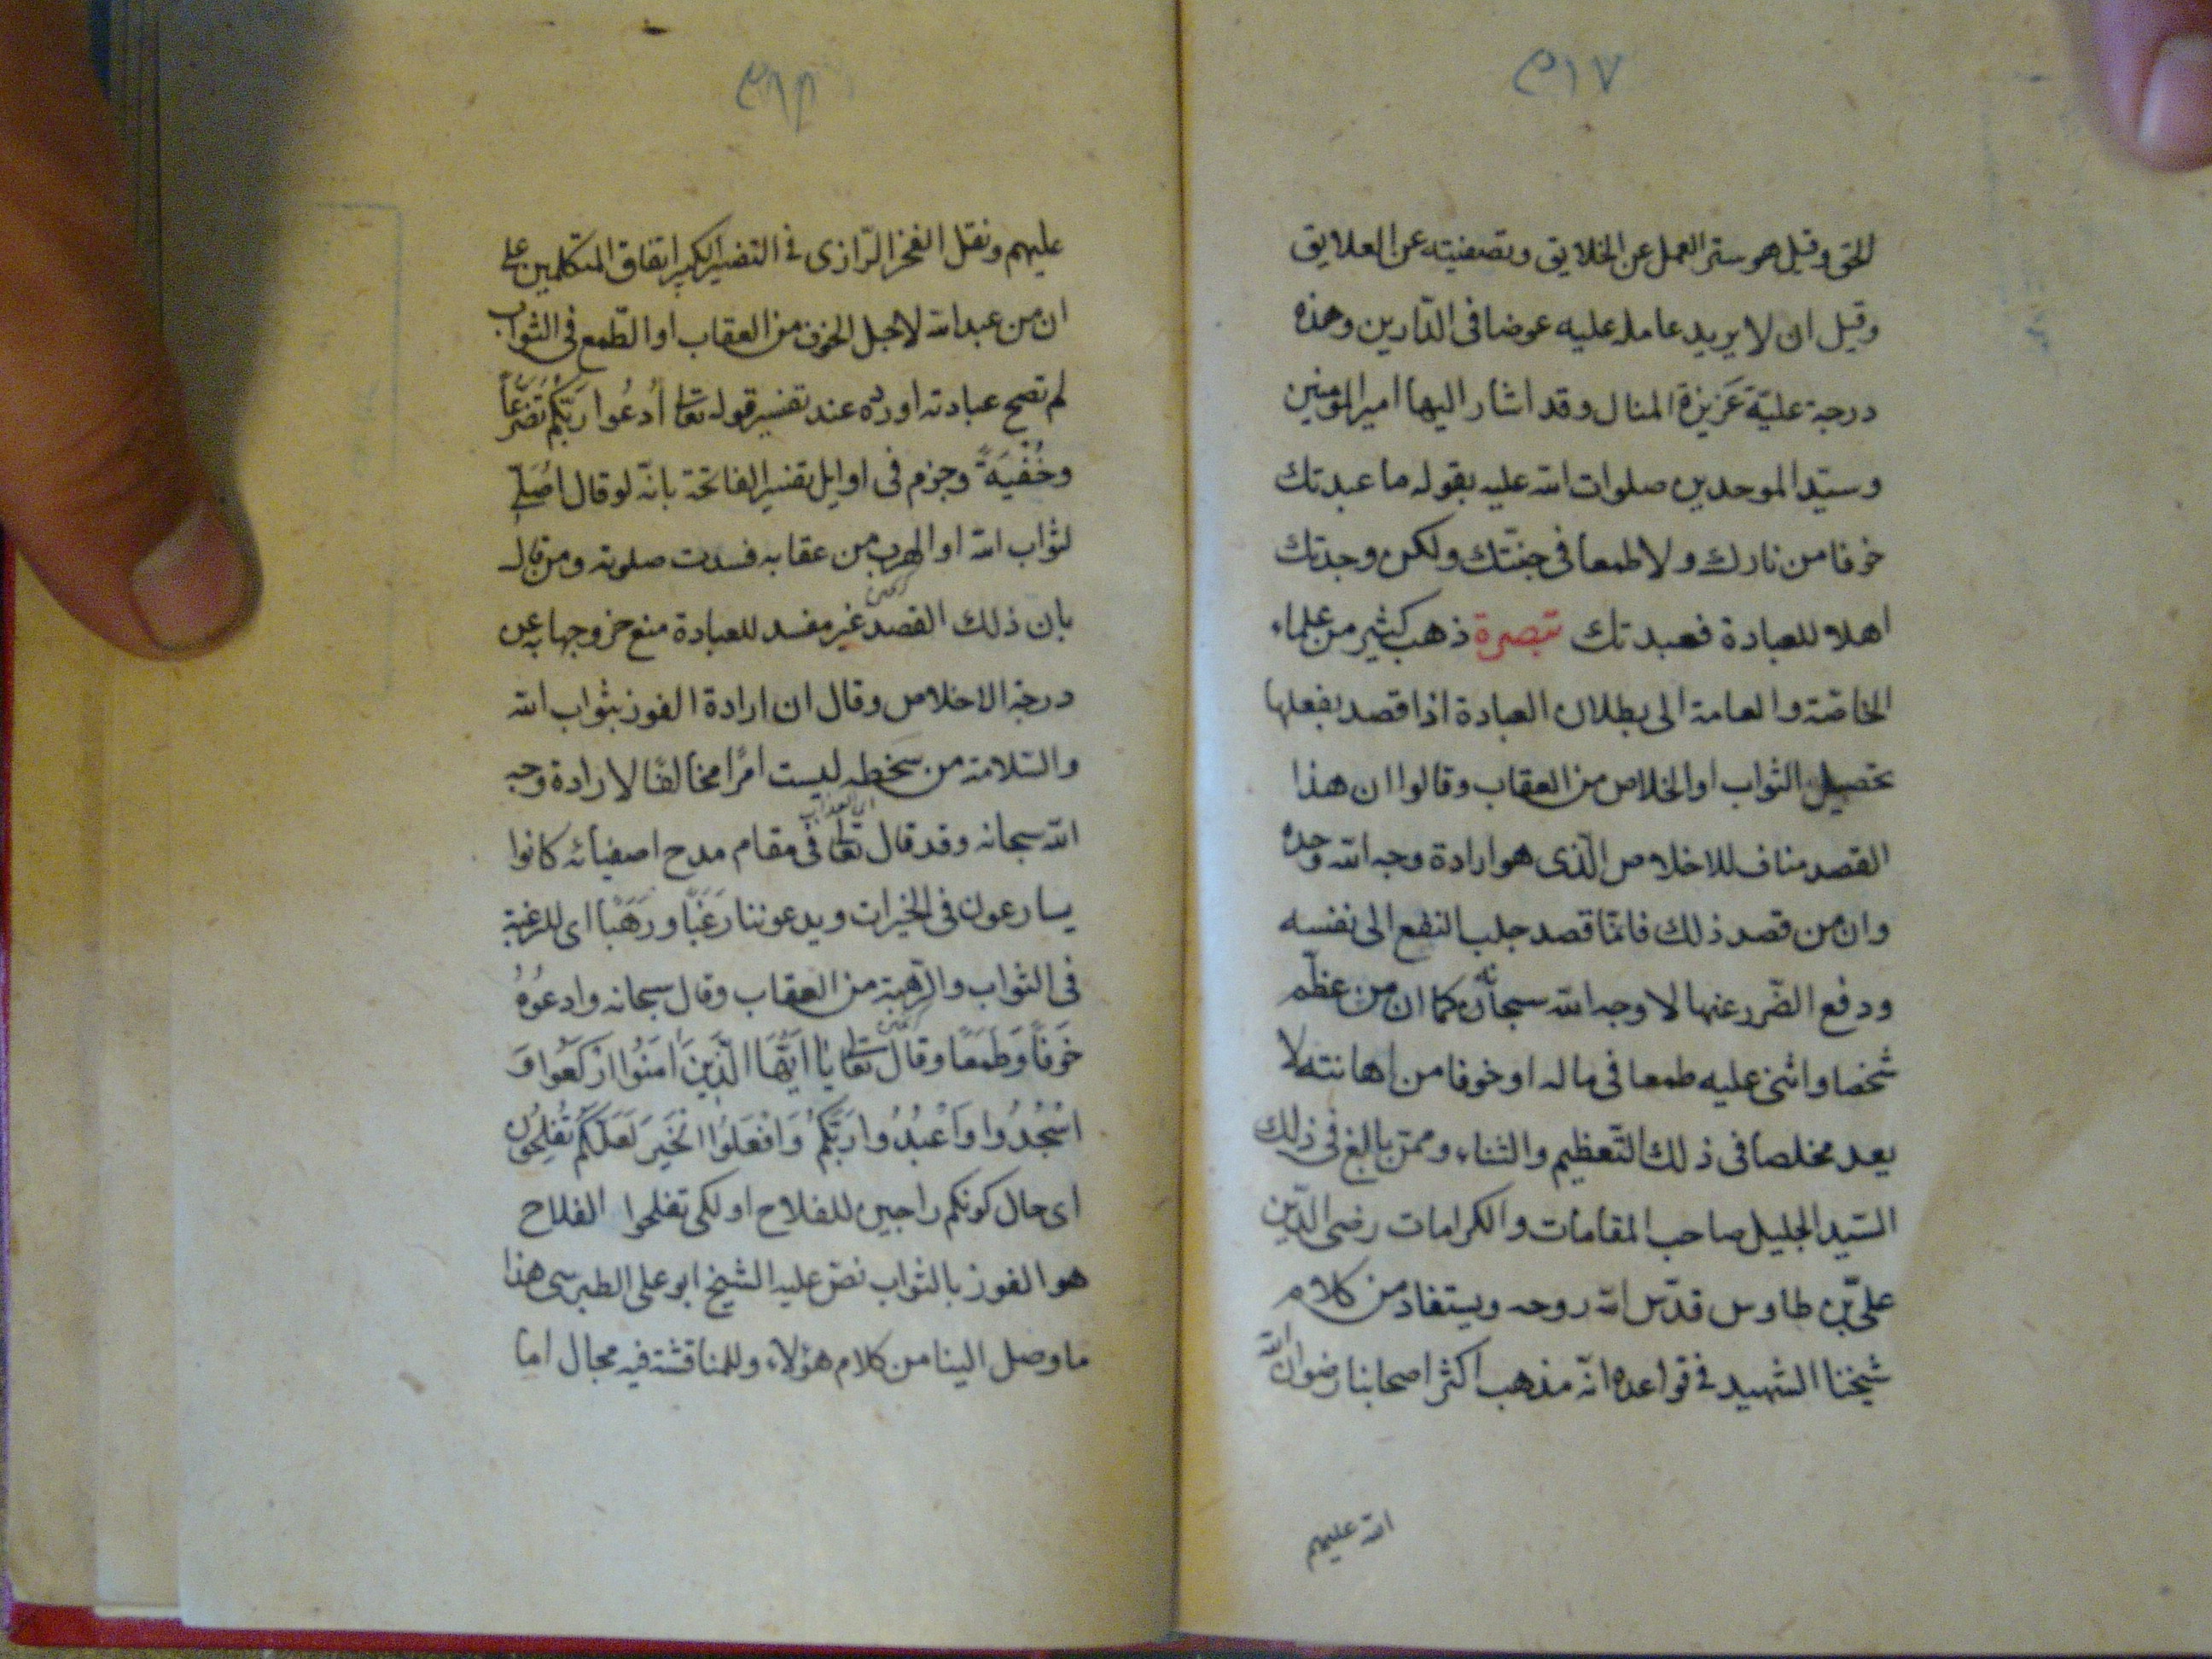 ٢١٧
الحق وقيل هو ستر العمل عن الخلايق وتصفيته عن العلايق
وقيل ان لا يريد عامله عليه عوضا فى الدّارين وهذه
درجة عليّة عَزيزة المنال وقد اشار اليها امير المومنين
وسيّد الموحدين صلوات الله عليه بقوله ما عبدتك
خوفا من نارك ولا طمعا فى جنّتك ولكن وجدتك
اهلا للعبادة فعبدتك تبصرة ذهب كثير من علماء
الخاصّة والعامة الى بطلان العبادة اذا قصد بفعلها
تحصيل الثواب او الخلاص من العقاب وقالوا ان هذا
القصد مناف للاخلاص الّذى هو ارادة وجه الله وحده
وان من قصد ذلك فانّما قصد جلب النفع الى نفسه
ودفع الضّرر عنها لا وجه الله سبحانه كما ان من عظّم
شخصا واثنى عليه طمعا فى ماله او خوفا من اهانته لا
يعد مخلصا فى ذلك التّعظيم والثناء وممّن بالغ فى ذلك
السّيد الجليل صاحب المقامات والكرامات رضى الدّين
علىّ بن طاوس قدّس الله روحه ويستفاد من كلام
شيخنا الشهيد فى قواعده انّه مذهب اكثر اصحابنا رضوان الله
الله عليهم
٢١٨
عليهم ونقل الفخر الرّازى فى التفسير الكبير اتفاق المتكلمين على
ان من عبد الله لاجل الخوف من العقاب او الطّمع فى الثواب
لم تصح عبادته اورده عند تفسير قوله تعا اُدعُوا ربّكم تَضَرّعاً
وخُفْيَةً وجزم فى اوايل تفسير الفاتحة بانّه لو قال اُصَلّى
لثواب الله او الهرب من عقابه فسدت صلوته ومن قال
بان ذلك القصد غير مفسد للعبادة منع خروجها به عن
درجة الاخلاص وقال ان ارادة الفوز بثواب الله
والسّلامة من سَخطه ليست امرًا مخالفًا لارادة وجه
الله سبحانه وقد قال تعا فى مقام مدح اصفيائه كانوا
يسارعون فى الخيرات ويدعوننا رَغَبًا ورَهَبًا اى للرغبة
فى الثواب والرّهبة من العقاب وقال سبحانه وادعُوهُ
خَوفاً وَطَمَعًا وقال تعا يا ايّهَا الّذِينَ اٰمَنُوا ارْكَعُوا وَ
اسْجُدُوا وَاعْبُدُوا رَبَّكُمْ وَافْعَلُوا الخَيرَ لَعَلَّكُمْ تُفْلِحُونَ
اى حال كونكم راجين للفلاح او لكى تفلحوا الفلاح
هو الفوز بالثواب نصّ عليه الشيخ ابو على الطبرسى هذا
ما وصل الينا من كلام هؤلاء وللمناقشة فيه مجال اما